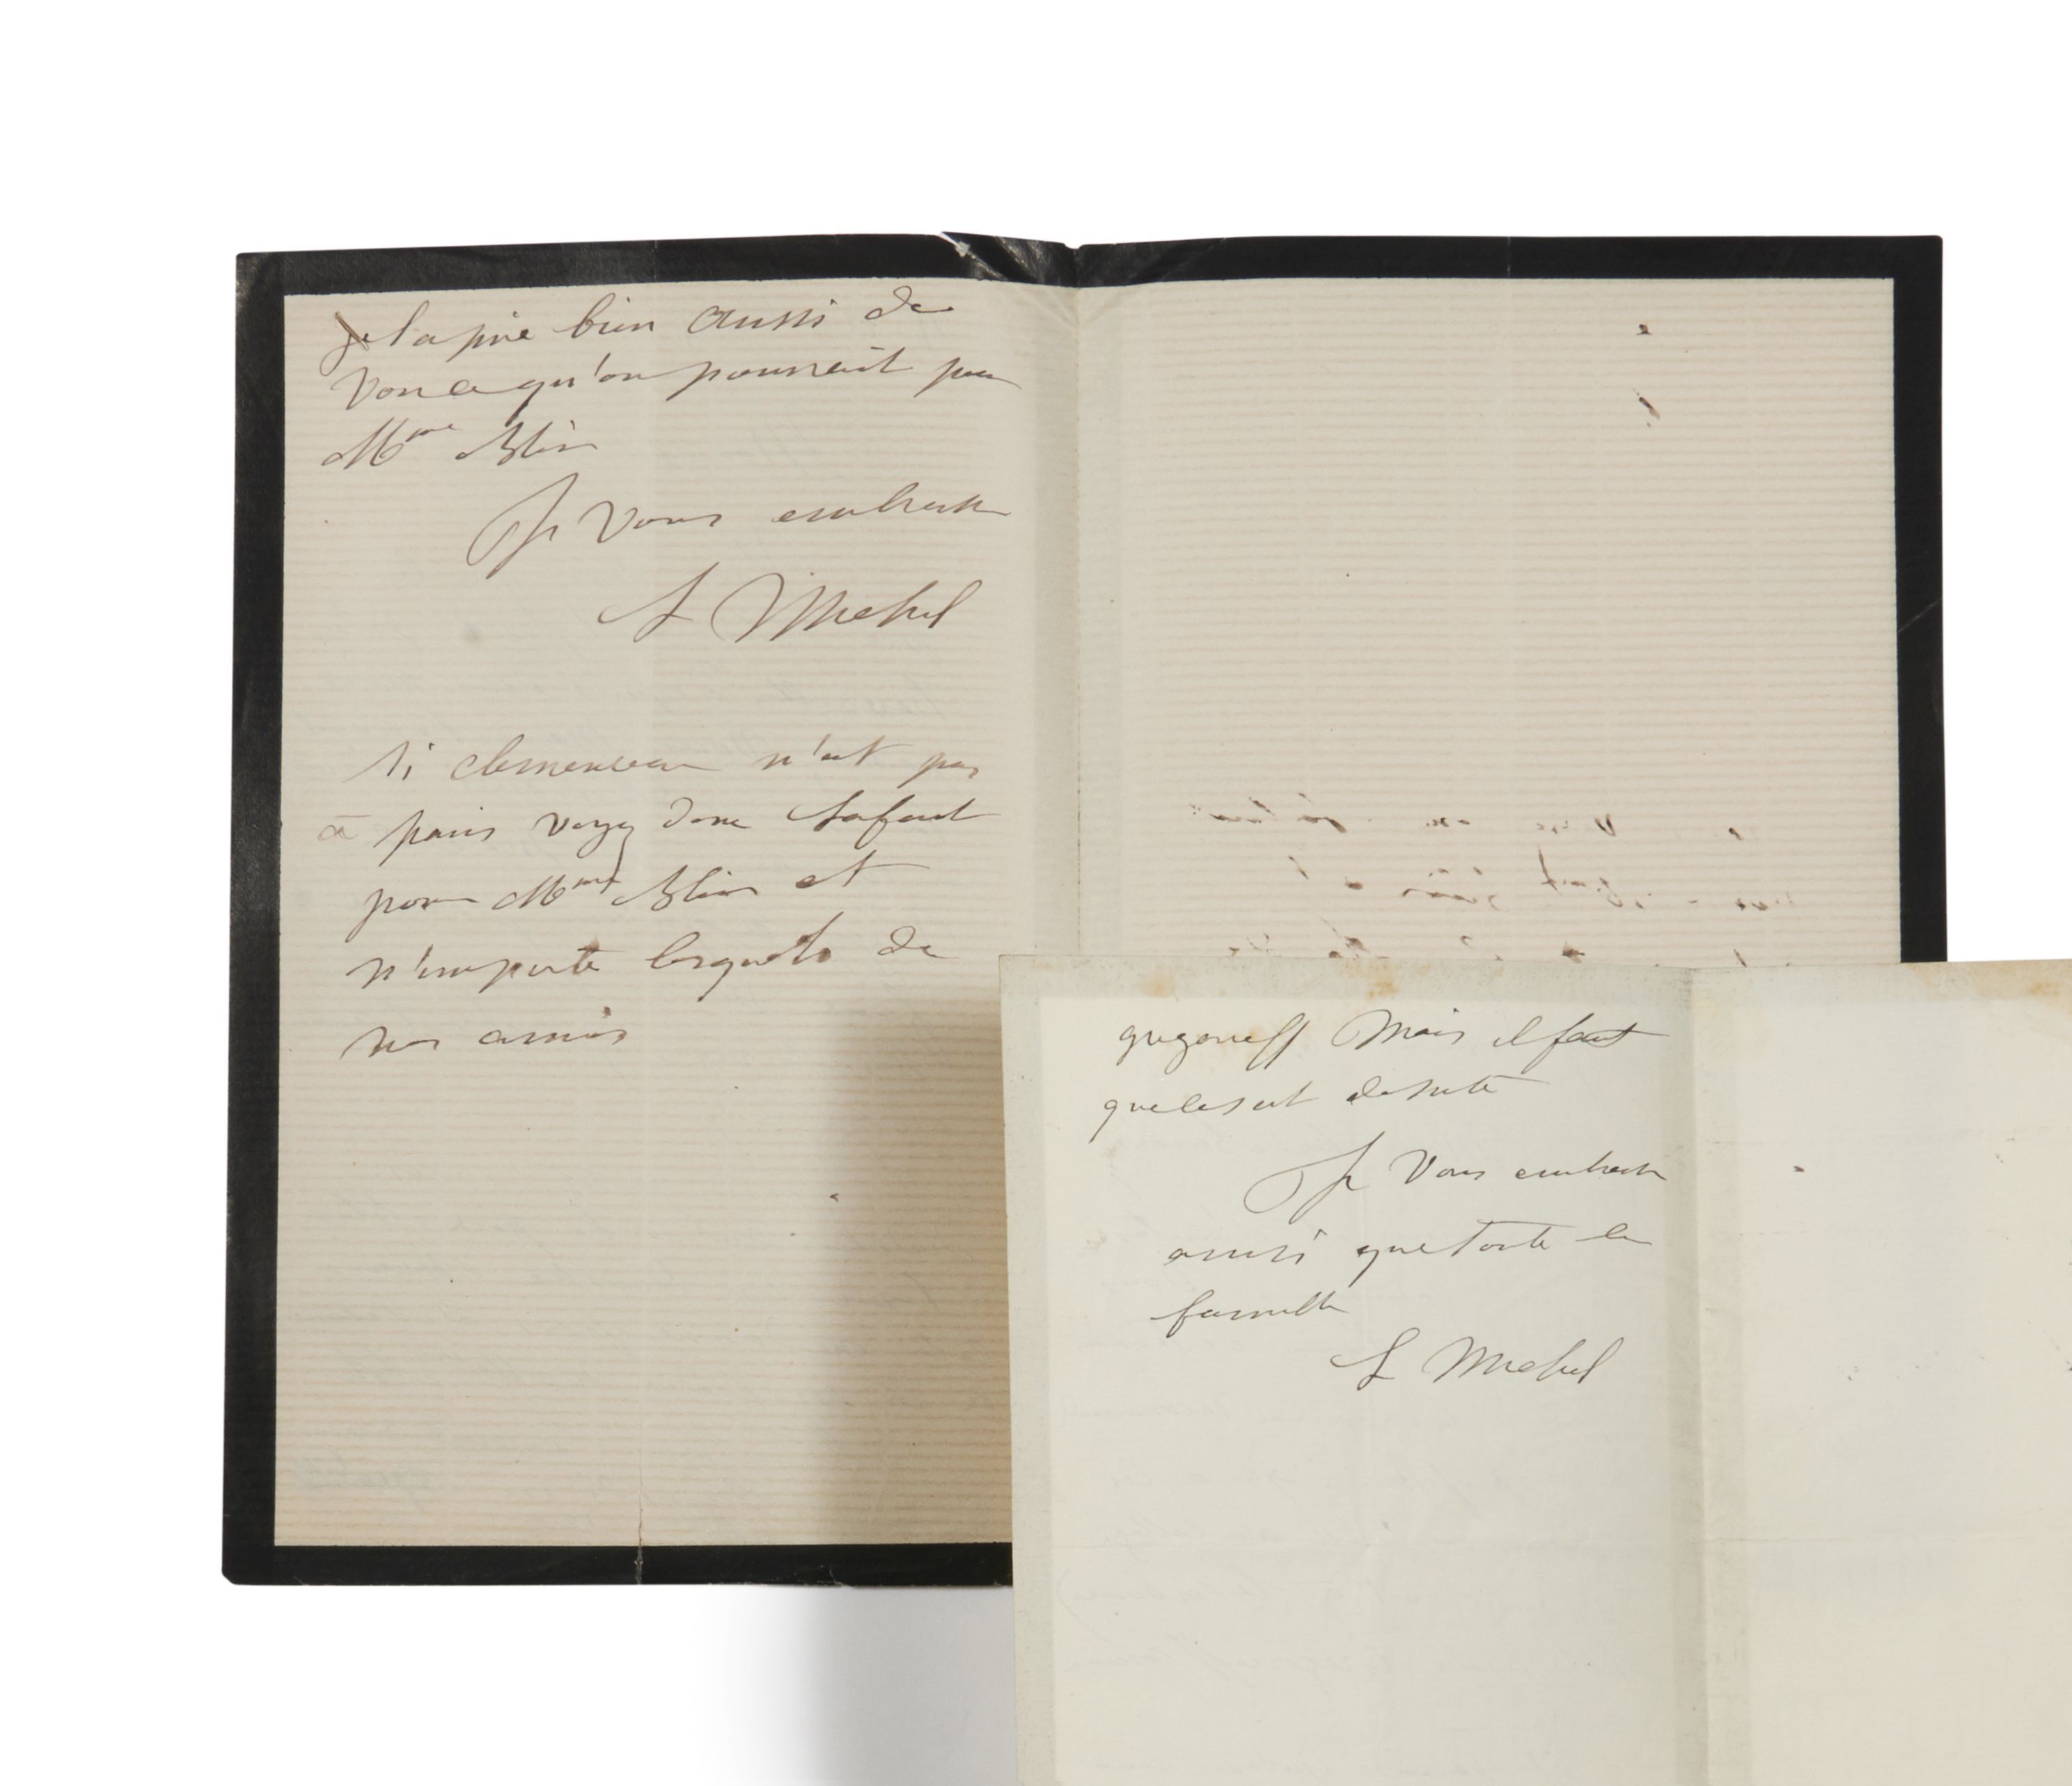 je la prie bien aussi de
voir ce qu'on pourrait pour
Mme Blin
Je vous embrasse
L Michel
si clemenceau n'est pas
à paris voyez donc Lafont
pour Mme Blin et
n'importe lesquels de
nos amis
grigorieff Mais il faut
que ce soit de suite
Je vous embrasse
ainsi que toute la
famille
L Michel